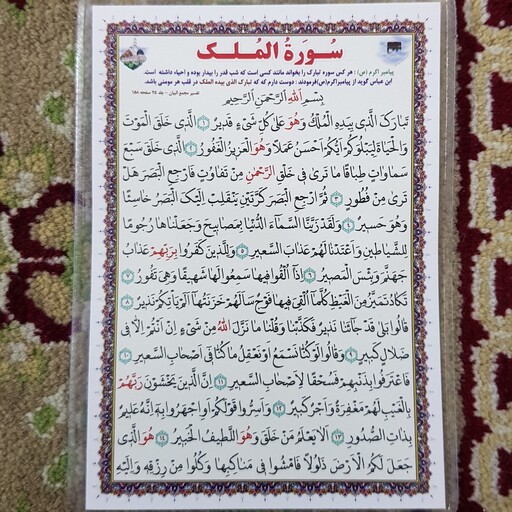 سُورَةُ المُلک
پیامبر اکرم (ص) : هر کس سوره تبارک را بخواند مانند کسی است که شب قدر را بیدار بوده و احیاء داشته است.
ابن عباس گوید از پیامبراکرم(ص)فرمودند : دوست دارم که که تبارک الذی بیده الملک در قلب هر مومنی باشد.
تفسیر مجمع البیان - جلد ۲۵ صفحه ۱۵۸
بِسْمِ اللّٰهِ الرَّحْمٰنِ الرَّحِيمِ
تَبارَكَ الَّذي بِيَدِهِ الْمُلْكُ وَهُوَ عَلى كُلِّ شَيْءٍ قَديرٌ ﴿١﴾ الَّذي خَلَقَ الْمَوْتَ
وَالْحَياةَ لِيَبْلُوَكُمْ اَيُّكُمْ اَحْسَنُ عَمَلًا وَهُوَ الْعَزيزُ الْغَفُورُ ﴿٢﴾ الَّذي خَلَقَ سَبْعَ
سَماواتٍ طِباقًا ما تَرى في خَلْقِ الرَّحْمٰنِ مِنْ تَفاوُتٍ فَارْجِعِ الْبَصَرَ هَلْ
تَرى مِنْ فُطُورٍ ﴿٣﴾ ثُمَّ ارْجِعِ الْبَصَرَ كَرَّتَيْنِ يَنْقَلِبْ اِلَيْكَ الْبَصَرُ خاسِئًا
وَهُوَ حَسيرٌ ﴿٤﴾ وَلَقَدْ زَيَّنَّا السَّماءَ الدُّنْيا بِمَصابيحَ وَجَعَلْناها رُجُومًا
لِلشَّياطينِ وَاَعْتَدْنا لَهُمْ عَذابَ السَّعيرِ ﴿٥﴾ وَلِلَّذينَ كَفَرُوا بِرَبِّهِمْ عَذابُ
جَهَنَّمَ وَبِئْسَ الْمَصيرُ ﴿٦﴾ اِذا اُلْقُوا فيها سَمِعُوا لَها شَهيقًا وَهِيَ تَفُورُ ﴿٧﴾
تَكادُ تَمَيَّزُ مِنَ الْغَيْظِ كُلَّما اُلْقِيَ فيها فَوْجٌ سَاَلَهُمْ خَزَنَتُها اَلَمْ يَأْتِكُمْ نَذيرٌ ﴿٨﴾
قالُوا بَلى قَدْ جاءَنا نَذيرٌ فَكَذَّبْنا وَقُلْنا ما نَزَّلَ اللّٰهُ مِنْ شَيْءٍ اِنْ اَنْتُمْ اِلّا في
ضَلالٍ كَبيرٍ ﴿٩﴾ وَقالُوا لَوْ كُنّا نَسْمَعُ اَوْ نَعْقِلُ ما كُنّا في اَصْحابِ السَّعيرِ ﴿١٠﴾
فَاعْتَرَفُوا بِذَنْبِهِمْ فَسُحْقًا لِاَصْحابِ السَّعيرِ ﴿١١﴾ اِنَّ الَّذينَ يَخْشَوْنَ رَبَّهُمْ
بِالْغَيْبِ لَهُمْ مَغْفِرَةٌ وَاَجْرٌ كَبيرٌ ﴿١٢﴾ وَاَسِرُّوا قَوْلَكُمْ اَوِ اجْهَرُوا بِهِ اِنَّهُ عَليمٌ
بِذاتِ الصُّدُورِ ﴿١٣﴾ اَلا يَعْلَمُ مَنْ خَلَقَ وَهُوَ اللَّطيفُ الْخَبيرُ ﴿١٤﴾ هُوَ الَّذي
جَعَلَ لَكُمُ الْاَرْضَ ذَلُولًا فَامْشُوا في مَناكِبِها وَكُلُوا مِنْ رِزْقِهِ وَاِلَيْهِ